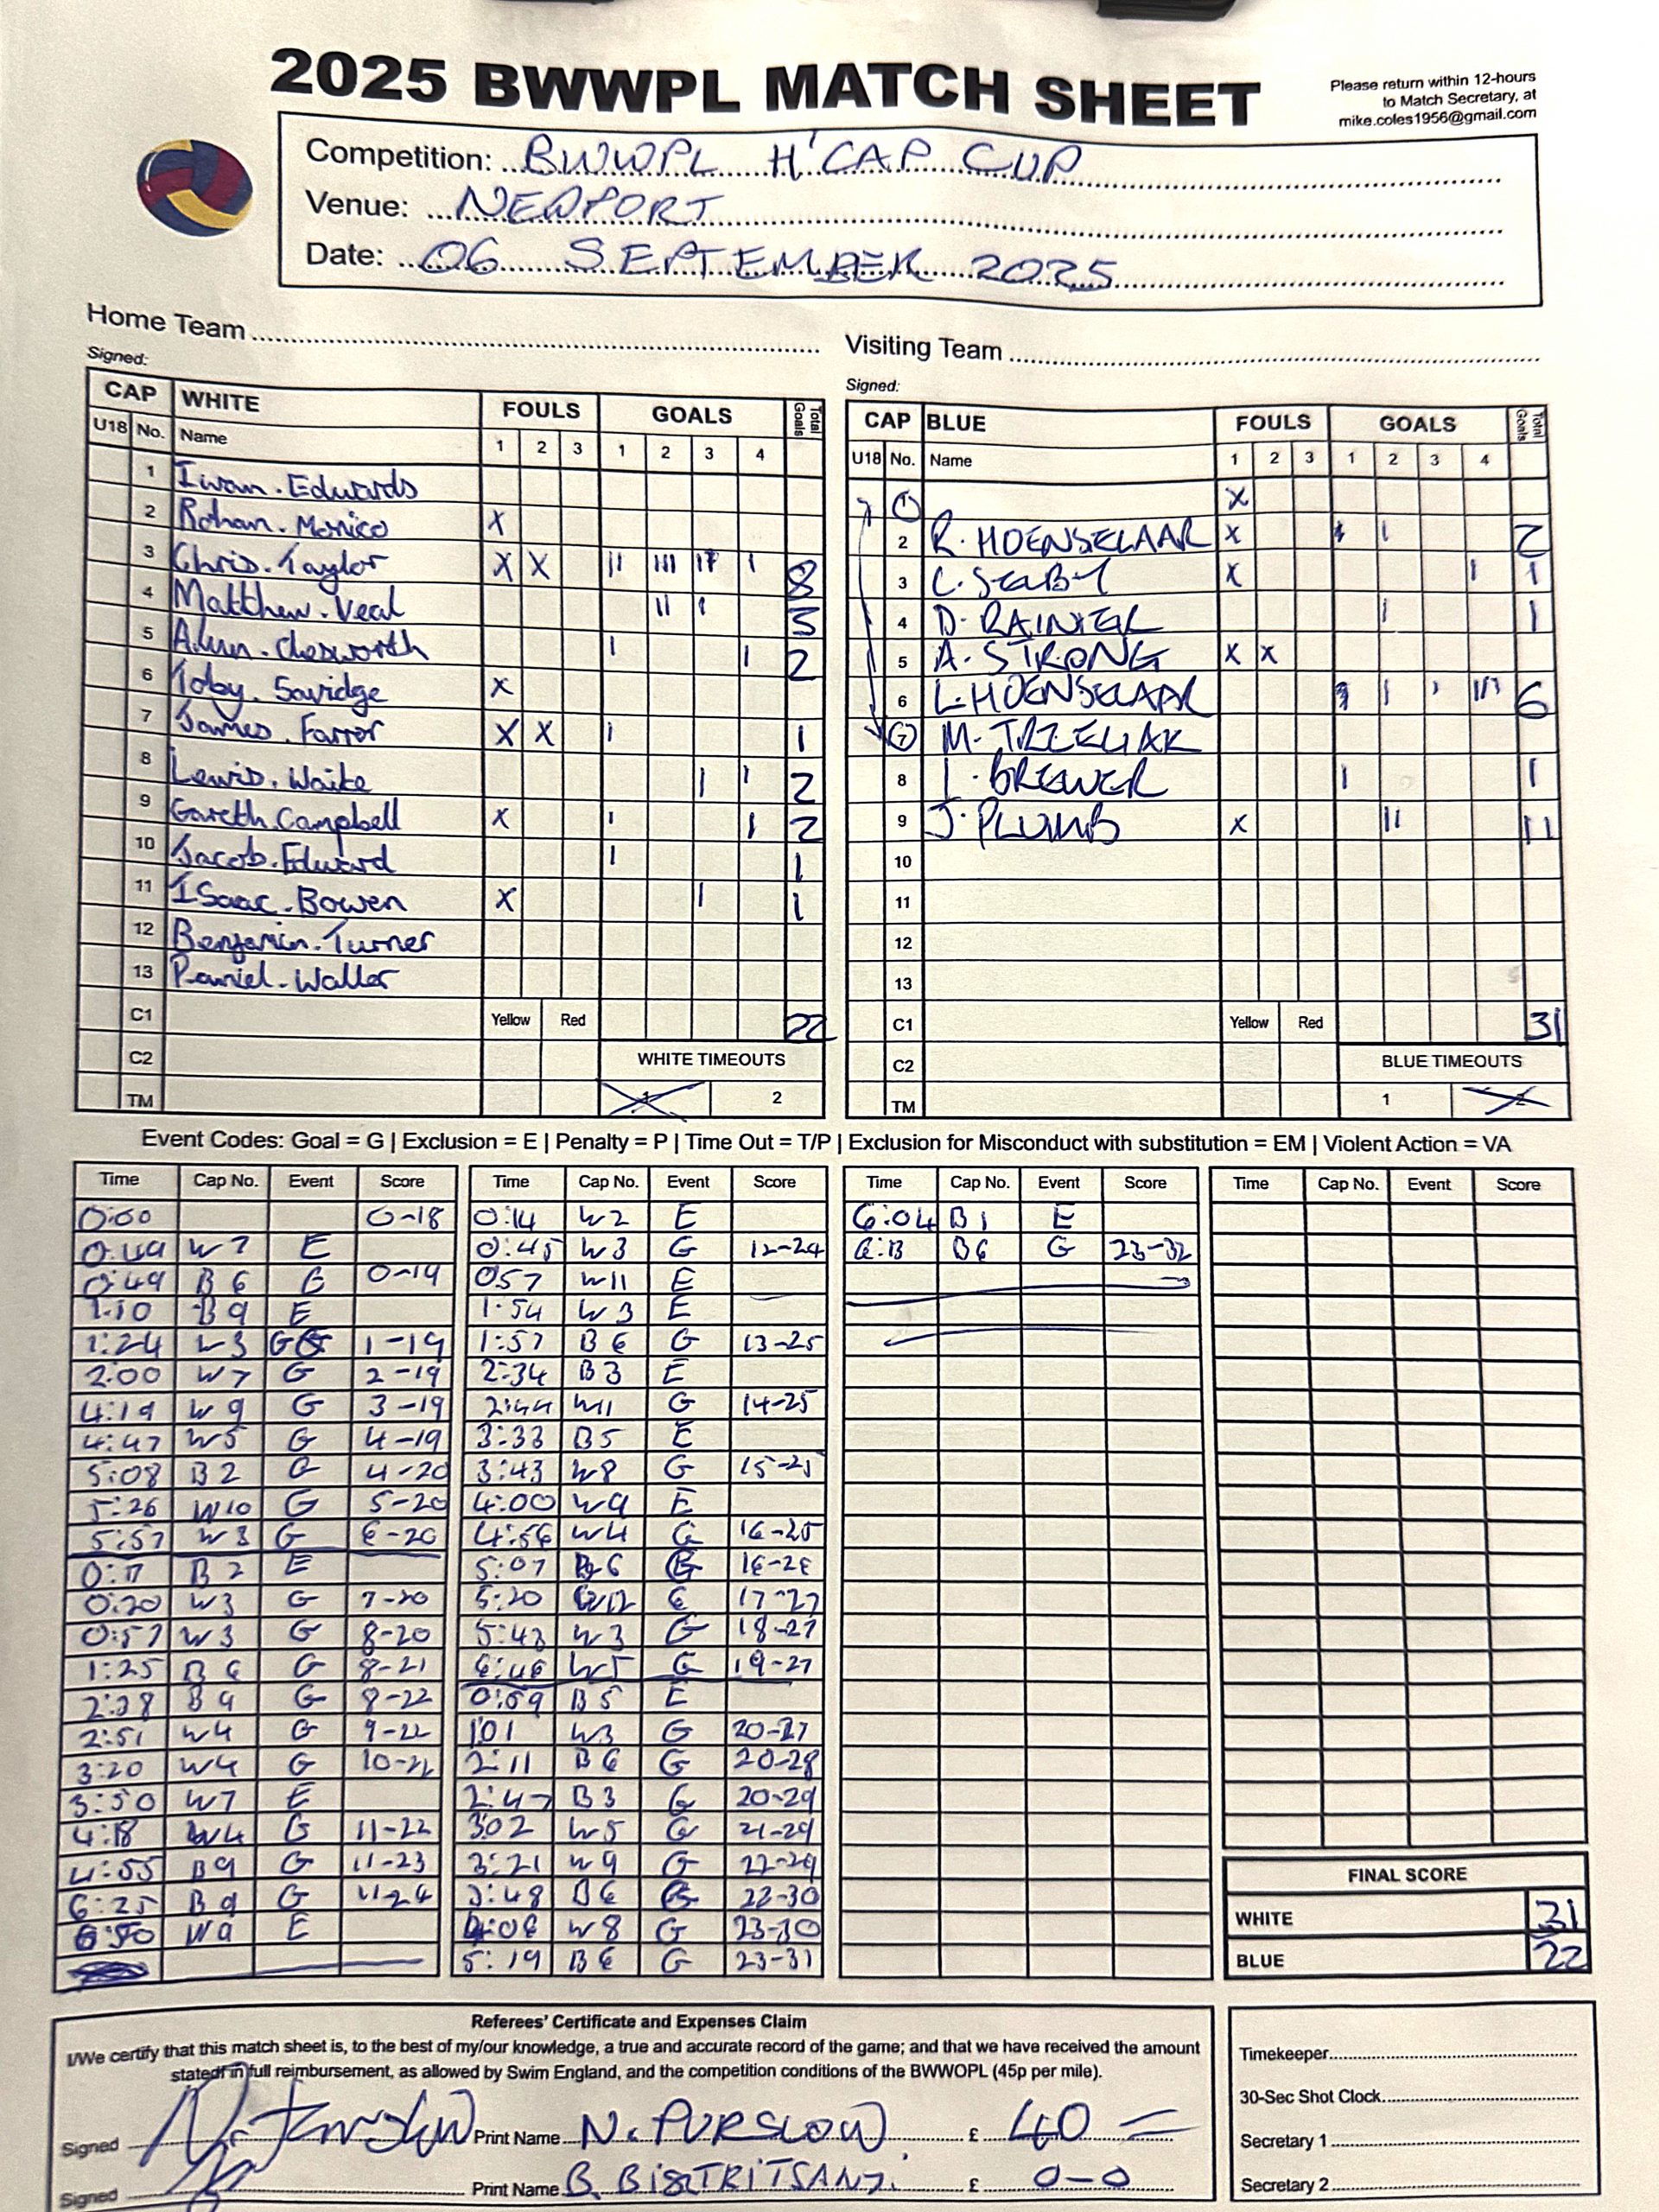 2025 BWWPL MATCH SHEET
Please return within 12-hours
to Match Secretary, at
mike.coles1956@gmail.com
Competition: BWWPL H'CAP CUP
Venue: NEWPORT
Date: 06 SEPTEMBER 2025
Home Team
Visiting Team
Signed:
Signed:
CAP WHITE FOULS GOALS Total Goals
U18 No. Name 1 2 3 1 2 3 4
1 Iwan. Edwards
2 Rohan. Monico X
3 Chris. Taylor X X II III I I 8
4 Matthew. Veal II I 3
5 Alun. Chesworth I I 2
6 Toby. Savidge X
7 James. Farror X X I 1
8 Lewis. Waite I I 2
9 Gareth. Campbell X I I 2
10 Jacob. Edward I 1
11 Isaac. Bowen X I 1
12 Benjamin. Turner
13 Daniel. Waller
C1 Yellow Red 22
C2 WHITE TIMEOUTS
TM 1 2
CAP BLUE FOULS GOALS Total Goals
U18 No. Name 1 2 3 1 2 3 4
1 X
2 R. HOENSELAAR X I I 2
3 C. X I 1
4 D. RAINIER I 1
5 A. STRONG X X
6 L. HOENSELAAR I I III 6
7 M. TRZELIAK
8 BREWER I 1
9 J. PLUMB X II 11
10
11
12
13
C1 Yellow Red 31
C2 BLUE TIMEOUTS
TM 1 2
Event Codes: Goal = G | Exclusion = E | Penalty = P | Time Out = T/P | Exclusion for Misconduct with substitution = EM | Violent Action = VA
Time Cap No. Event Score
0:00 0-18
0:49 W7 E
0:49 B6 G 0-19
1:10 B9 E
1:24 W3 G 1-19
2:00 W7 G 2-19
4:19 W9 G 3-19
4:47 W5 G 4-19
5:08 B2 G 4-20
5:26 W10 G 5-20
5:57 W3 G 6-20
0:17 B2 E
0:20 W3 G 7-20
0:57 W3 G 8-20
1:25 B6 G 8-21
2:28 B9 G 8-22
2:51 W4 G 9-22
3:20 W4 G 10-22
3:50 W7 E
4:18 W4 G 11-22
4:55 B9 G 11-23
6:25 B9 G 11-24
6:50 W9 E
Time Cap No. Event Score
0:14 W2 E
0:45 W3 G 12-24
0:57 W11 E
1:54 W3 E
1:57 B6 G 13-25
2:34 B3 E
2:44 W11 G 14-25
3:33 B5 E
3:43 W8 G 15-25
4:00 W9 E
4:56 W4 G 16-25
5:07 B6 G 16-26
5:20 17-27
5:43 W3 G 18-27
6:46 W5 G 19-27
0:59 B5 E
1:01 W3 G 20-27
2:11 B6 G 20-28
2:47 B3 G 20-29
3:02 W5 G 21-29
3:21 W9 G 22-29
3:48 B6 G 22-30
4:06 W8 G 23-30
5:19 B6 G 23-31
Time Cap No. Event Score
6:04 B1 E
6:13 B6 G 23-32
Time Cap No. Event Score
FINAL SCORE
WHITE 31
BLUE 22
Referees' Certificate and Expenses Claim
I/We certify that this match sheet is, to the best of my/our knowledge, a true and accurate record of the game; and that we have received the amount
stated in full reimbursement, as allowed by Swim England, and the competition conditions of the BWWOPL (45p per mile).
Signed Print Name N. PURSLOW £ 40 =
Signed Print Name B. £ 0-0
Timekeeper
30-Sec Shot Clock
Secretary 1
Secretary 2